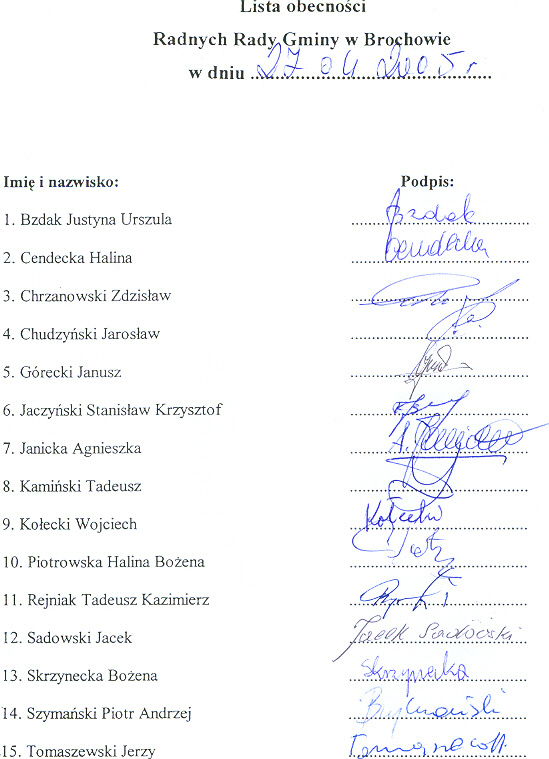 Lista obecności
Radnych Rady Gminy w Brochowie
w dniu 27 04 2005 r
Imię i nazwisko: Podpis:
1. Bzdak Justyna Urszula Bzdak
2. Cendecka Halina Cendecka
3. Chrzanowski Zdzisław
4. Chudzyński Jarosław
5. Górecki Janusz
6. Jaczyński Stanisław Krzysztof
7. Janicka Agnieszka A. Janicka
8. Kamiński Tadeusz
9. Kołecki Wojciech Kołecki
10. Piotrowska Halina Bożena
11. Rejniak Tadeusz Kazimierz
12. Sadowski Jacek Jacek Sadowski
13. Skrzynecka Bożena Skrzynecka
14. Szymański Piotr Andrzej
15. Tomaszewski Jerzy